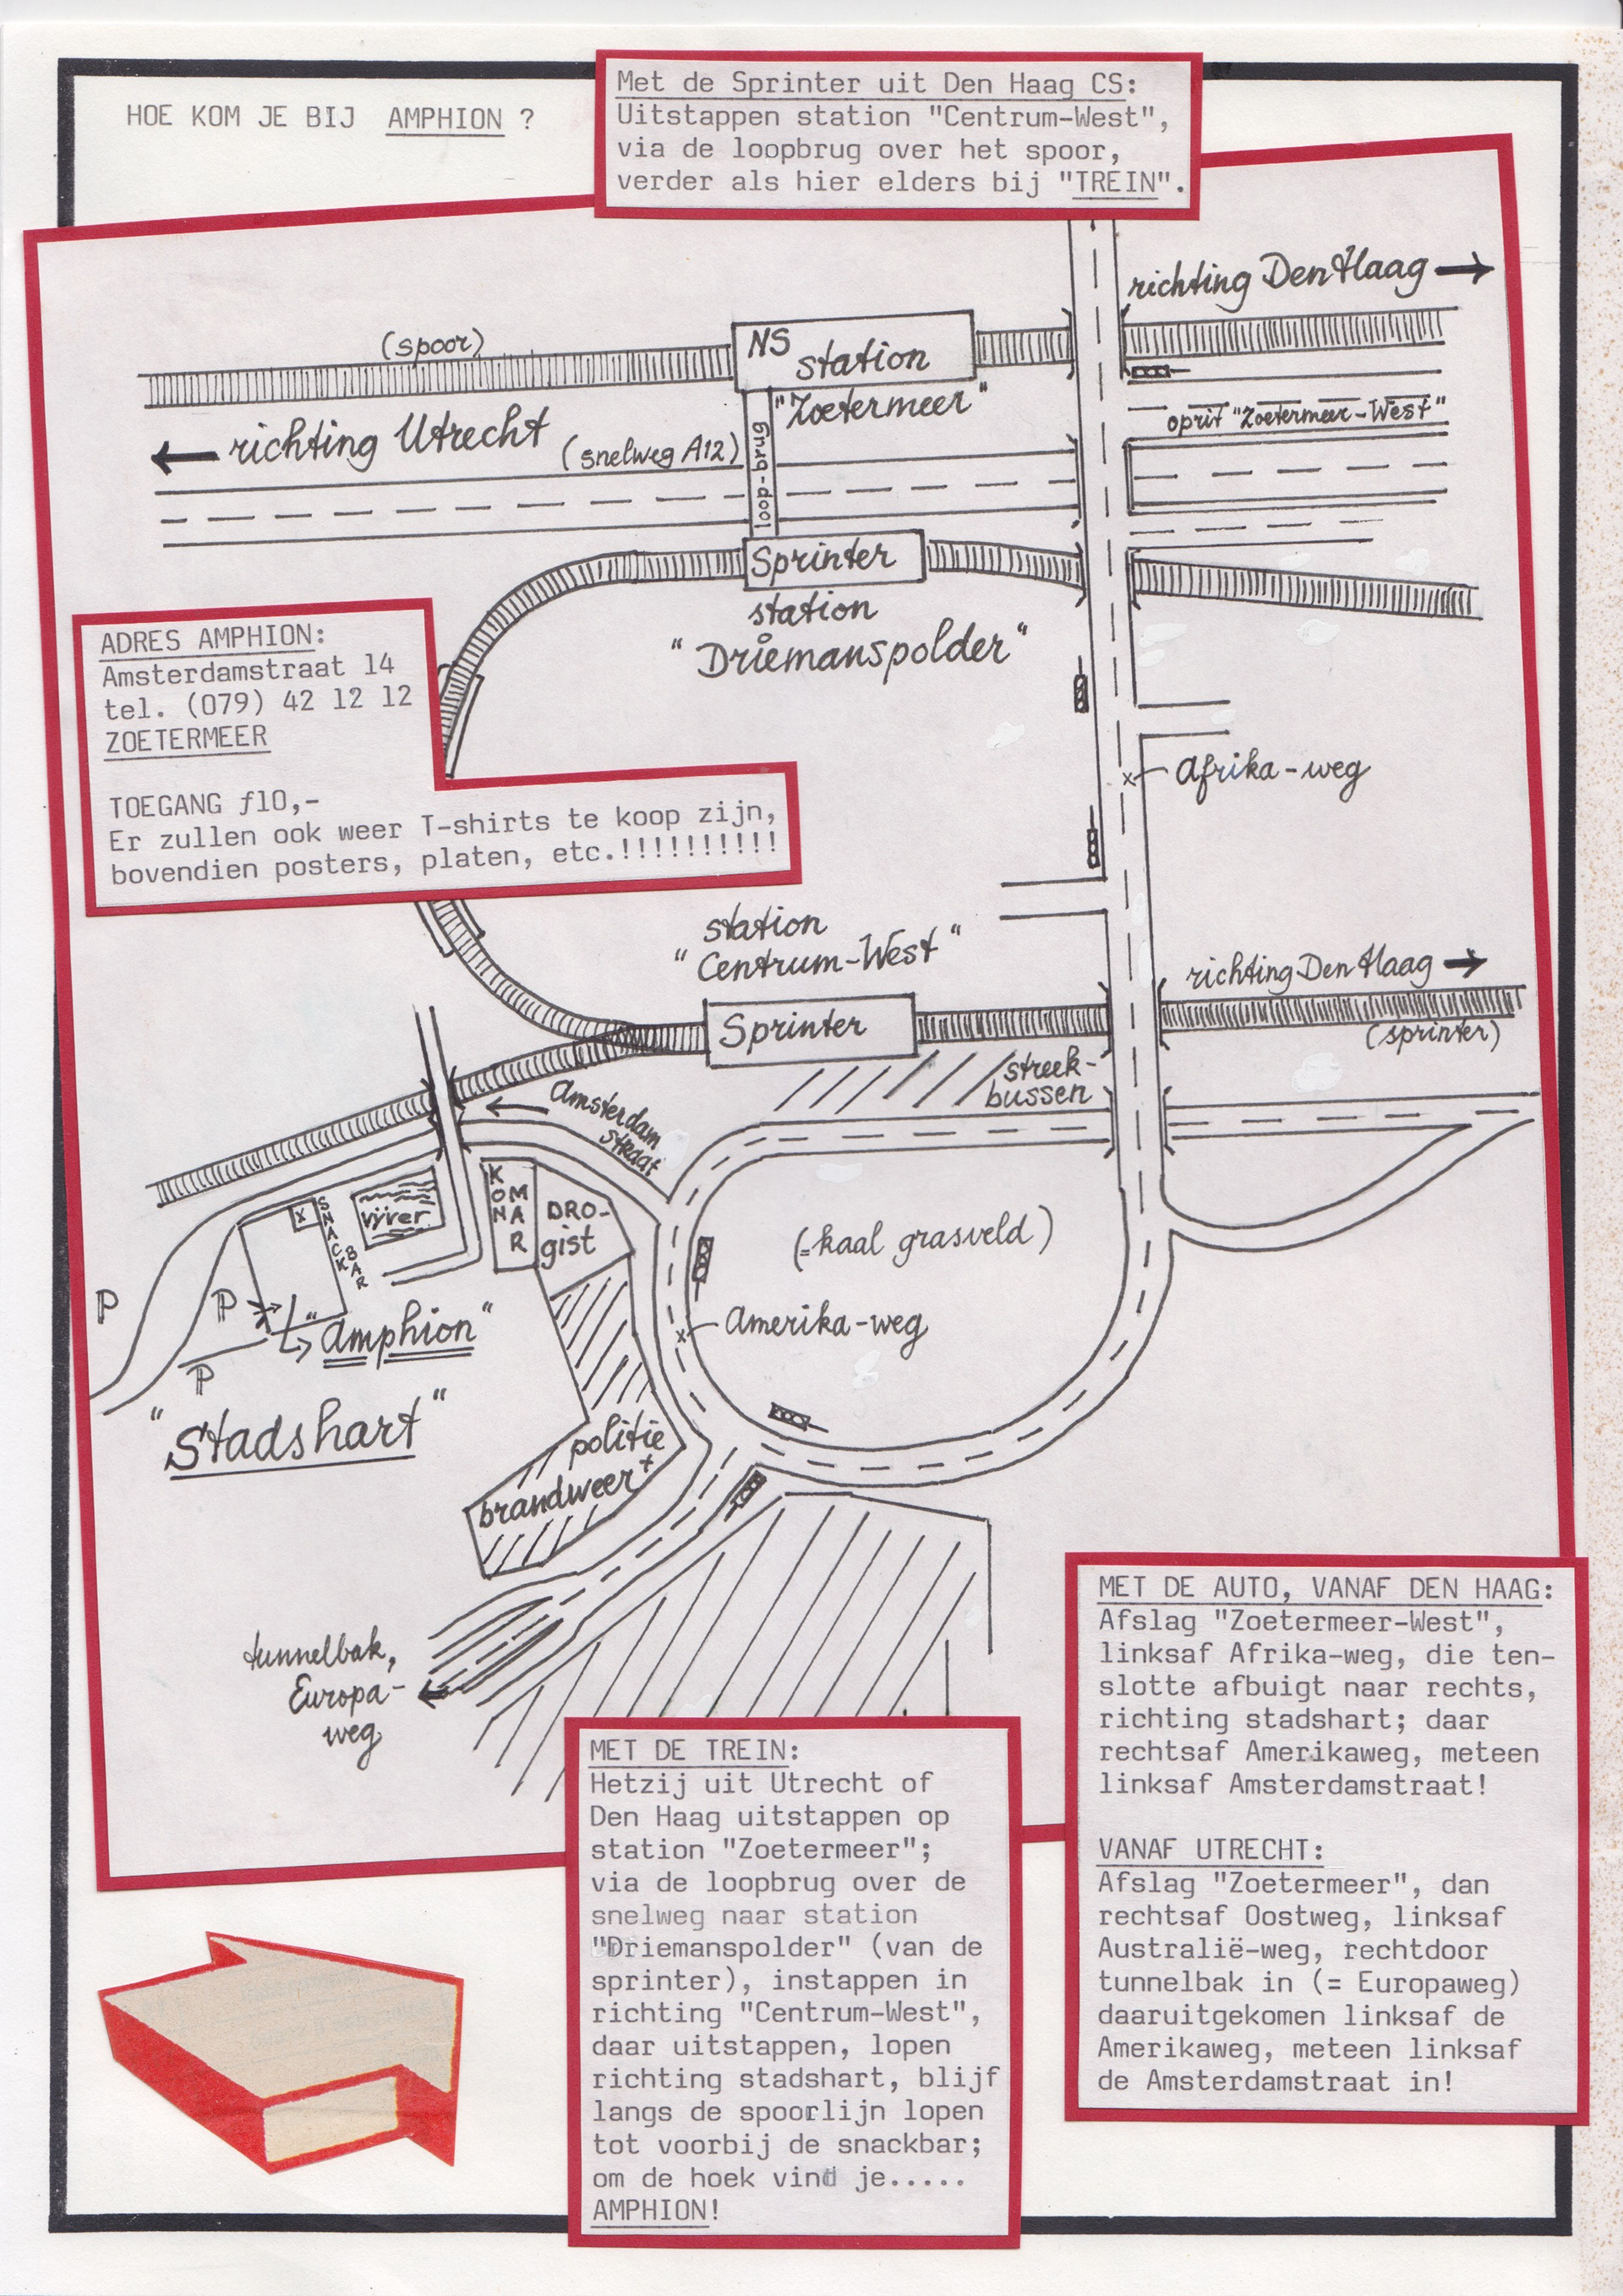 HOE KOM JE BIJ AMPHION ?
Met de Sprinter uit Den Haag CS:
Uitstappen station "Centrum-West",
via de loopbrug over het spoor,
verder als hier elders bij "TREIN".
richting Den Haag
(spoor)
NS
station
"Zoetermeer"
oprit "Zoetermeer-West"
richting Utrecht
(snelweg A12)
loop-brug
Sprinter
station
"Driemanspolder"
ADRES AMPHION:
Amsterdamstraat 14
tel. (079) 42 12 12
ZOETERMEER
TOEGANG ƒ10,-
Er zullen ook weer T-shirts te koop zijn,
bovendien posters, platen, etc.!!!!!!!!!!
x Afrika-weg
station
"Centrum-West"
richting Den Haag
Sprinter
(sprinter)
streek-
bussen
Amsterdam
straat
KONMAR
DRO-
gist
SNACK
BAR
x
vijver
(=kaal grasveld)
P
P
"Amphion"
x Amerika-weg
P
"Stadshart"
politie
brandweer +
tunnelbak,
Europa-
weg
MET DE AUTO, VANAF DEN HAAG:
Afslag "Zoetermeer-West",
linksaf Afrika-weg, die ten-
slotte afbuigt naar rechts,
richting stadshart; daar
rechtsaf Amerikaweg, meteen
linksaf Amsterdamstraat!
VANAF UTRECHT:
Afslag "Zoetermeer", dan
rechtsaf Oostweg, linksaf
Australië-weg, rechtdoor
tunnelbak in (= Europaweg)
daaruitgekomen linksaf de
Amerikaweg, meteen linksaf
de Amsterdamstraat in!
MET DE TREIN:
Hetzij uit Utrecht of
Den Haag uitstappen op
station "Zoetermeer";
via de loopbrug over de
snelweg naar station
"Driemanspolder" (van de
sprinter), instappen in
richting "Centrum-West",
daar uitstappen, lopen
richting stadshart, blijf
langs de spoorlijn lopen
tot voorbij de snackbar;
om de hoek vind je.....
AMPHION!